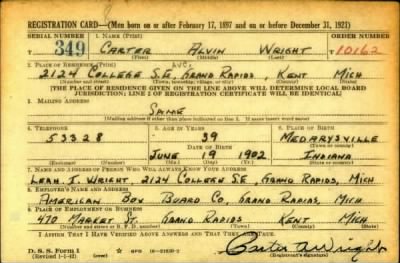 REGISTRATION CARD—(Men born on or after February 17, 1897 and on or before December 31, 1921)
SERIAL NUMBER 1. NAME (Print) ORDER NUMBER
T 349 CARTER ALVIN WRIGHT T 10162
(First) (Middle) (Last)
2. PLACE OF RESIDENCE (Print) AVE.
2124 COLLEGE S.E. GRAND RAPIDS, KENT MICH
(Number and street) (Town, township, village, or city) (County) (State)
[THE PLACE OF RESIDENCE GIVEN ON THE LINE ABOVE WILL DETERMINE LOCAL BOARD
JURISDICTION; LINE 2 OF REGISTRATION CERTIFICATE WILL BE IDENTICAL]
3. MAILING ADDRESS
SAME
(Mailing address if other than place indicated on line 2. If same insert word same)
4. TELEPHONE 5. AGE IN YEARS 6. PLACE OF BIRTH
53328 39 MEDARYSVILLE
DATE OF BIRTH (Town or county)
JUNE 19 1902 INDIANA
(Exchange) (Number) (Mo.) (Day) (Yr.) (State or country)
7. NAME AND ADDRESS OF PERSON WHO WILL ALWAYS KNOW YOUR ADDRESS
LEAH I. WRIGHT, 2124 COLLEGE S.E., GRAND RAPIDS, MICH
8. EMPLOYER'S NAME AND ADDRESS
AMERICAN BOX BOARD CO, GRAND RAPIDS, MICH
9. PLACE OF EMPLOYMENT OR BUSINESS
470 MARKET ST. GRAND RAPIDS KENT MICH
(Number and street or R. F. D. number) (Town) (County) (State)
I AFFIRM THAT I HAVE VERIFIED ABOVE ANSWERS AND THAT THEY ARE TRUE.
D. S. S. Form 1
(Revised 1-1-42) (over) Carter A. Wright
(Registrant's signature)